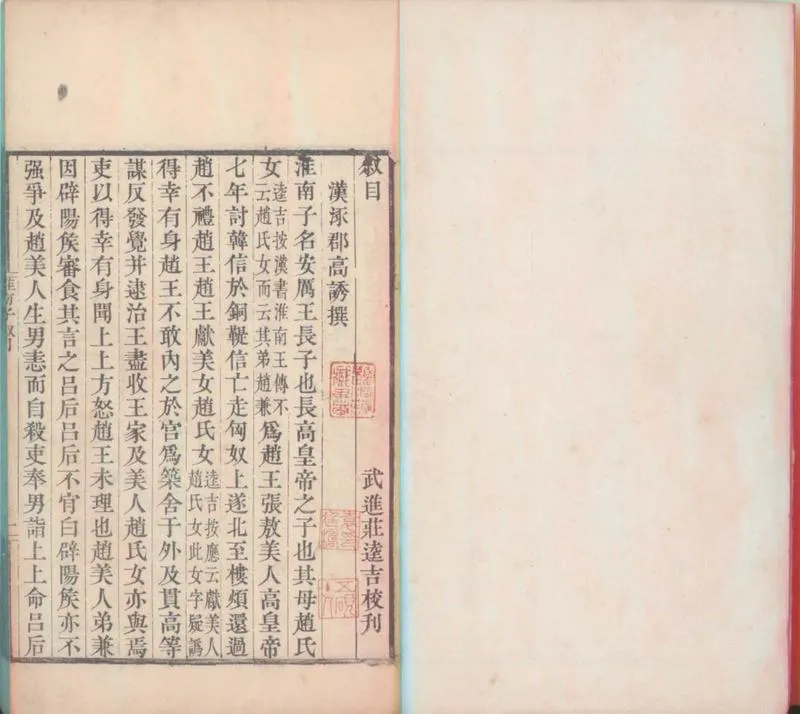 叙目
漢涿郡高誘撰
武進莊逵吉校刊
淮南子名安厲王長子也長高皇帝之子也其母趙氏
女逵吉按漢書淮南王傳不云趙氏女而云其弟趙兼爲趙王張敖美人高皇帝
七年討韓信於銅鞮信亡走匈奴上遂北至樓煩還過
趙不禮趙王趙王獻美女趙氏女逵吉按應云獻美人趙氏女此女字疑譌
得幸有身趙王不敢內之於宮爲築舍于外及貫高等
謀反發覺并逮治王盡收王家及美人趙氏女亦與焉
吏以得幸有身聞上上方怒趙王未理也趙美人弟兼
因辟陽矦審食其言之呂后呂后不肎白辟陽矦亦不
强爭及趙美人生男恚而自殺吏奉男詣上上命呂后